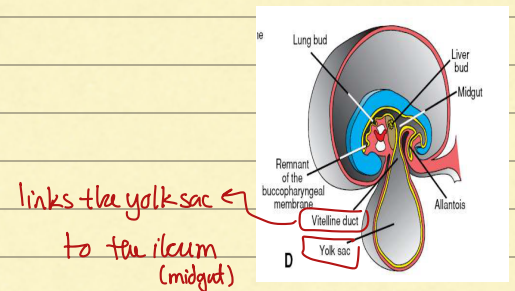 e
Lung bud
Liver
bud
Midgut
Remnant
of the
buccopharyngeal
membrane
Allantois
Vitelline duct
Yolk sac
D
links the yolk sac
to the ileum
(midgut)